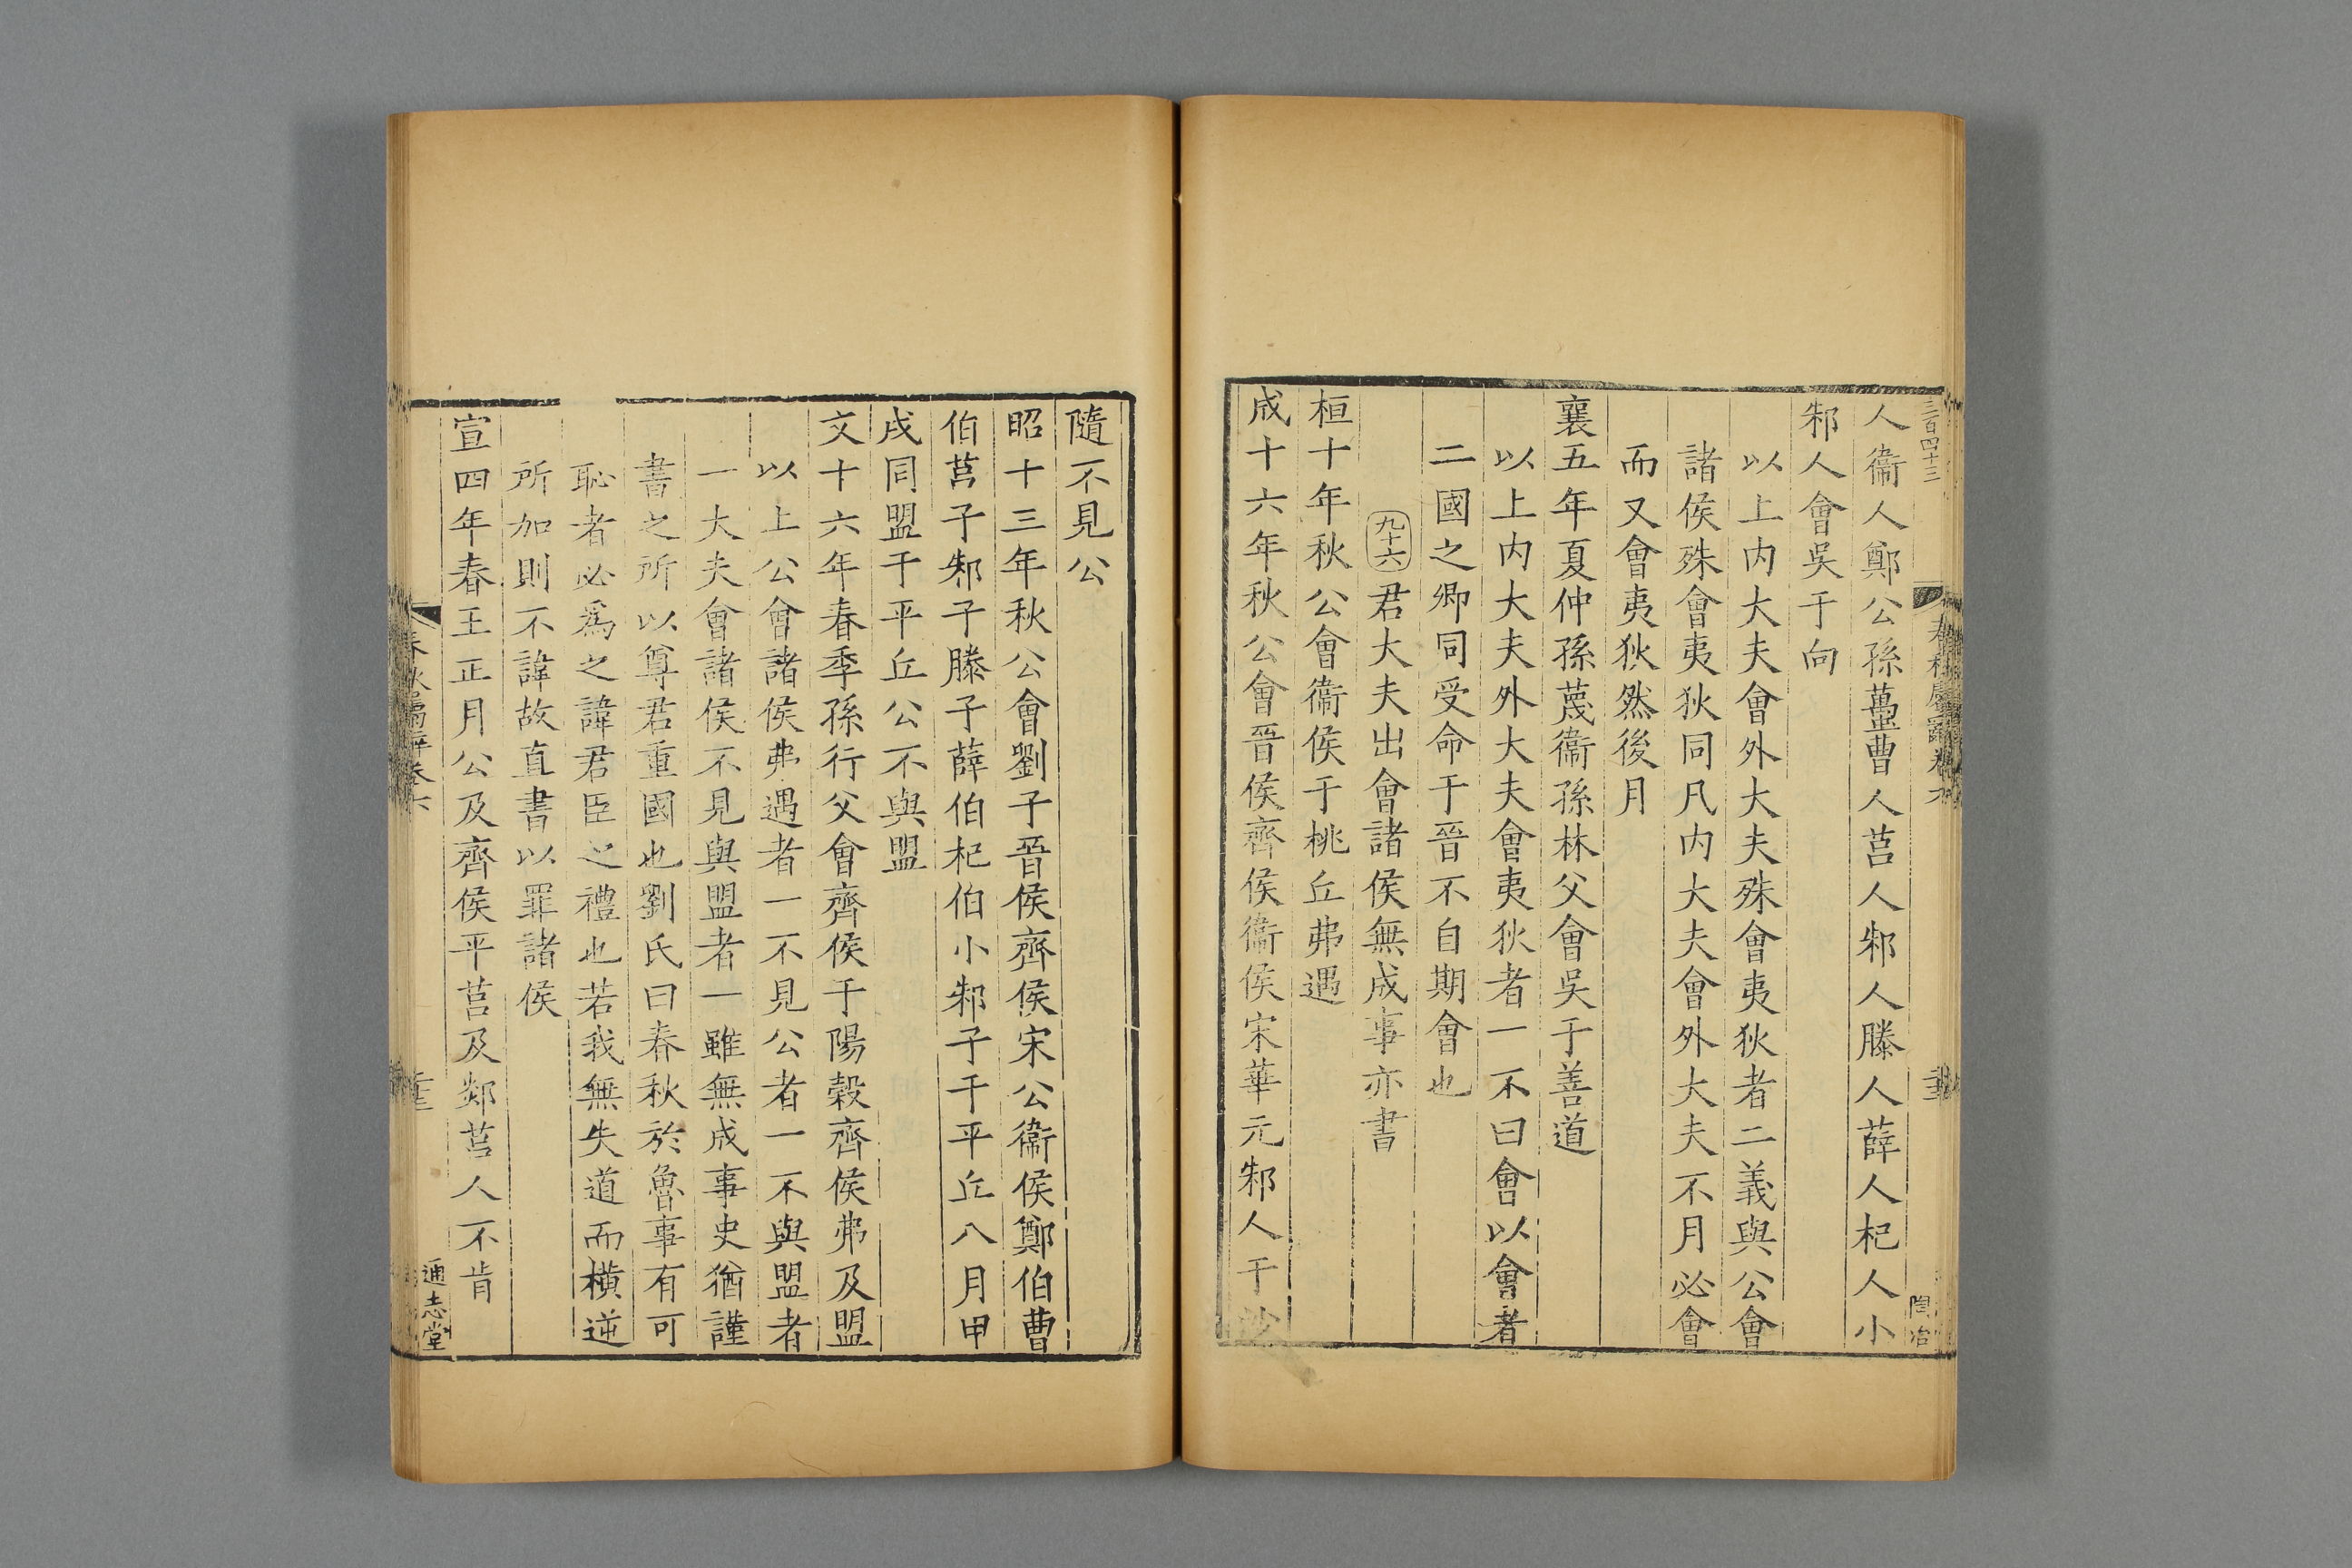 三百四十三
人衞人鄭公孫蠆曹人莒人邾人滕人薛人杞人小
邾人會吳于向
以上内大夫會外大夫殊會夷狄者二義與公會
諸侯殊會夷狄同凡内大夫會外大夫不月必會
而又會夷狄然後月
襄五年夏仲孫蔑衞孫林父會吳于善道
以上内大夫外大夫會夷狄者一不曰會以會者
二國之卿同受命于晉不自期會也
九十六君大夫出會諸侯無成事亦書
桓十年秋公會衞侯于桃丘弗遇
成十六年秋公會晉侯齊侯衞侯宋華元邾人于沙
隨不見公
昭十三年秋公會劉子晉侯齊侯宋公衞侯鄭伯曹
伯莒子邾子滕子薛伯杞伯小邾子于平丘八月甲
戌同盟于平丘公不與盟
文十六年春季孫行父會齊侯于陽穀齊侯弗及盟
以上公會諸侯弗遇者一不見公者一不與盟者
一大夫會諸侯不見與盟者一雖無成事史猶謹
書之所以尊君重國也劉氏曰春秋於魯事有可
恥者必爲之諱君臣之禮也若我無失道而橫逆
所加則不諱故直書以罪諸侯
宣四年春王正月公及齊侯平莒及郯莒人不肯
通志堂